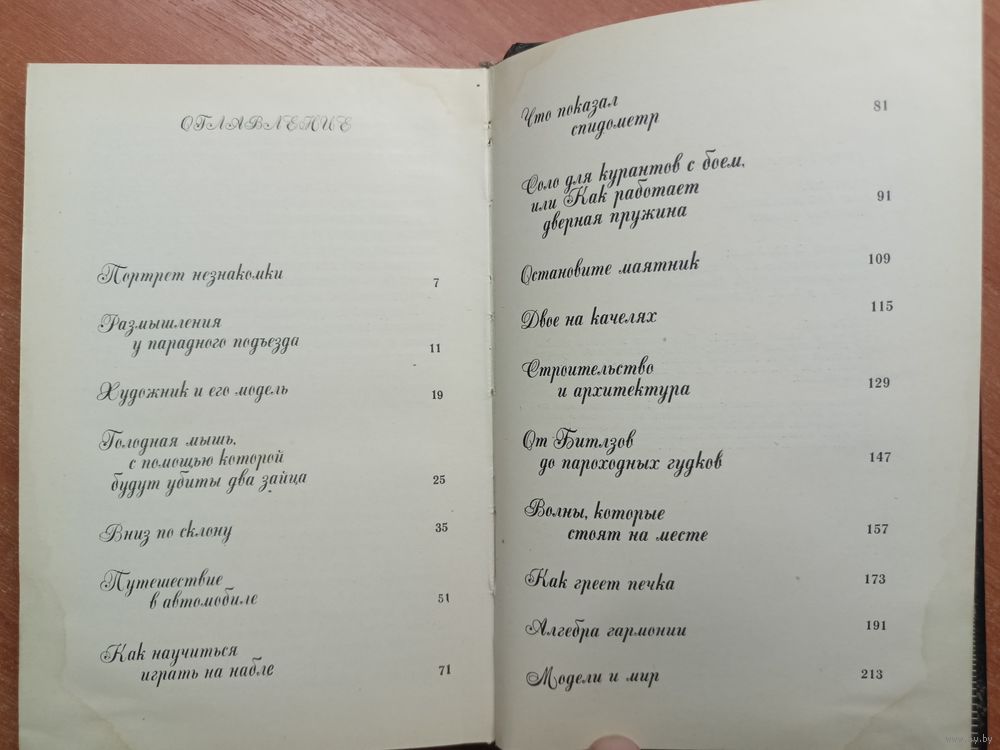 ОГЛАВЛЕНИЕ
Портрет незнакомки 7
Размышления
у парадного подъезда 11
Художник и его модель 19
Голодная мышь,
с помощью которой
будут убиты два зайца 25
Вниз по склону 35
Путешествие
в автомобиле 51
Как научиться
играть на набле 71
Что показал 81
спидометр
Соло для курантов с боем,
или Как работает 91
дверная пружина
Остановите маятник 109
Двое на качелях 115
Строительство
и архитектура 129
От Битлзов
до пароходных гудков 147
Волны, которые
стоят на месте 157
Как греет печка 173
Алгебра гармонии 191
Модели и мир 213